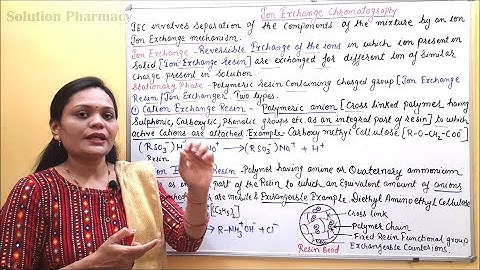 Solution Pharmacy
Ion Exchange Chromatography
IEC involves separation of the components of the mixture by an ion
Ion Exchange mechanism.
Ion Exchange - Reversible Exchange of the ions in which ion present in
Solid [Ion Exchange Resin] are exchanged for different Ion of similar
charge present in solution
Stationary Phase - Polymeric resin containing charged group [Ion Exchange
Resin/Ion Exchanger] Two types.
(1) Cation Exchange Resin - Polymeric anion [Cross linked polymer having
Sulphonic, Carboxylic, Phenolic groups etc. as an integral part of resin] to which
active Cations are attached. Example - Carboxy methyl Cellulose [R-O-CH₂-COO⁻]
(RSO₃⁻)H → (RSO₃⁻)Na⁺ + H⁺
Resin
Ion Resin - Polymer having amine or Quaternary ammonium
as in part of the Resin to which an equivalent amount of anions
are Exchangeable Example - Diethyl Aminoethyl Cellulose
[C₂H₅]
→ R-NH₃⁺OH⁻ + Cl⁻
Cross link
Polymer Chain
Fixed Resin Functional group
Exchangeable Counterions.
Resin Bead